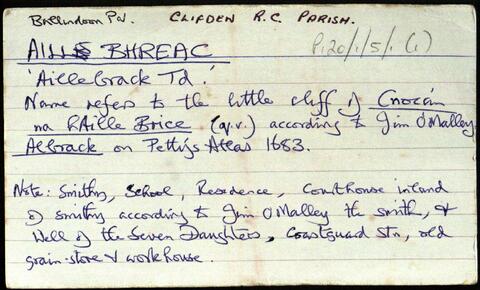 Ballindoon Pa. CLIFDEN R.C. PARISH.
P.20/1/5/1 (1)
AILL BHREAC
'Aillebrack Td.'
Name refers to the little cliff of Cnocán
na hAille Brice (q.v.) according to Jim O'Malley
Albrack on Pettys Atlas 1683.
Note: Smithy, School, Residence, Courthouse inland
of smithy according to Jim O Malley the smith, &
Well of the Seven Daughters, Coastguard Stn, old
grain-store & workhouse.